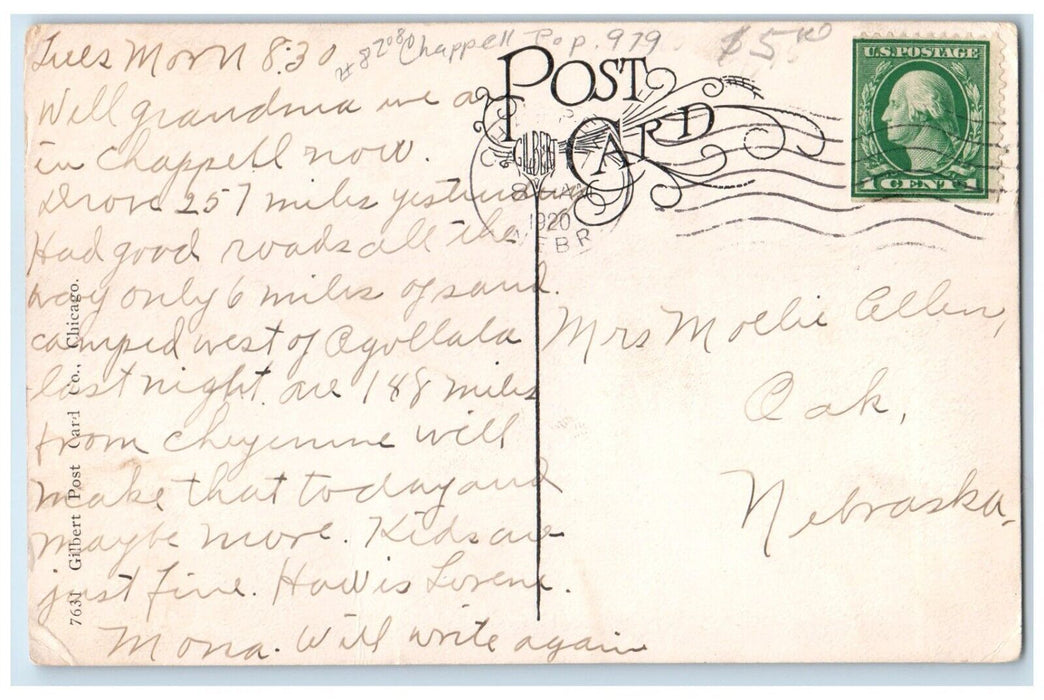 Tues Morn 8:30
Well grandma we a
in Chappell now.
Drove 257 miles yesterday
Had good roads all the
way only 6 miles of sand.
camped west of Ogollala
last night. are 188 miles
from Cheyenne will
make that today and
maybe more. Kids are
just fine. How is Lorene.
Mona. Will write again
# 82080 Chappell Pop. 979
$5.00
POST
CARD
GILBERT
1920
NEBR
U.S. POSTAGE
1 CENT 1
Mrs Mollie Allen,
Oak,
Nebraska.
7631 Gilbert Post Card Co., Chicago.